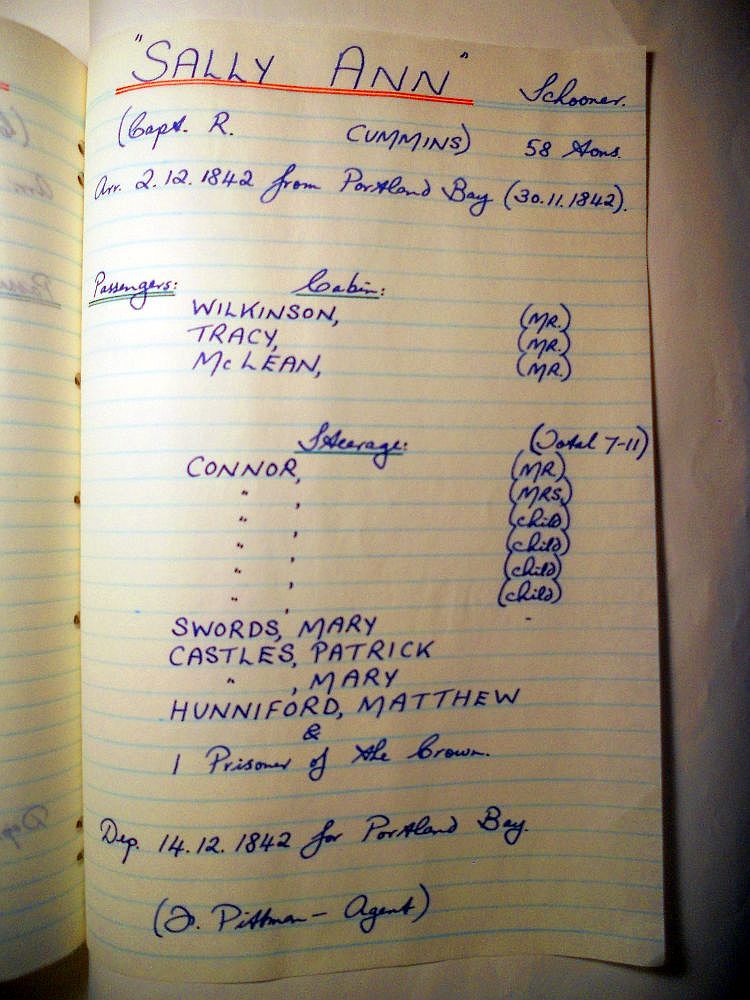 "SALLY ANN" Schooner.
(Capt. R. CUMMINS) 58 tons.
Arr. 2.12.1842 from Portland Bay (30.11.1842).
Passengers: Cabin:
WILKINSON, (MR.)
TRACY, (MR.)
McLEAN, (MR.)
Steerage: (Total 7-11)
CONNOR, (MR)
" , (MRS.)
" , (child)
" , (child)
" , (child)
" , (child)
SWORDS, MARY
CASTLES, PATRICK
" , MARY
HUNNIFORD, MATTHEW
&
1 Prisoner of the Crown.
Dep. 14.12.1842 for Portland Bay.
Pittman - Agent)